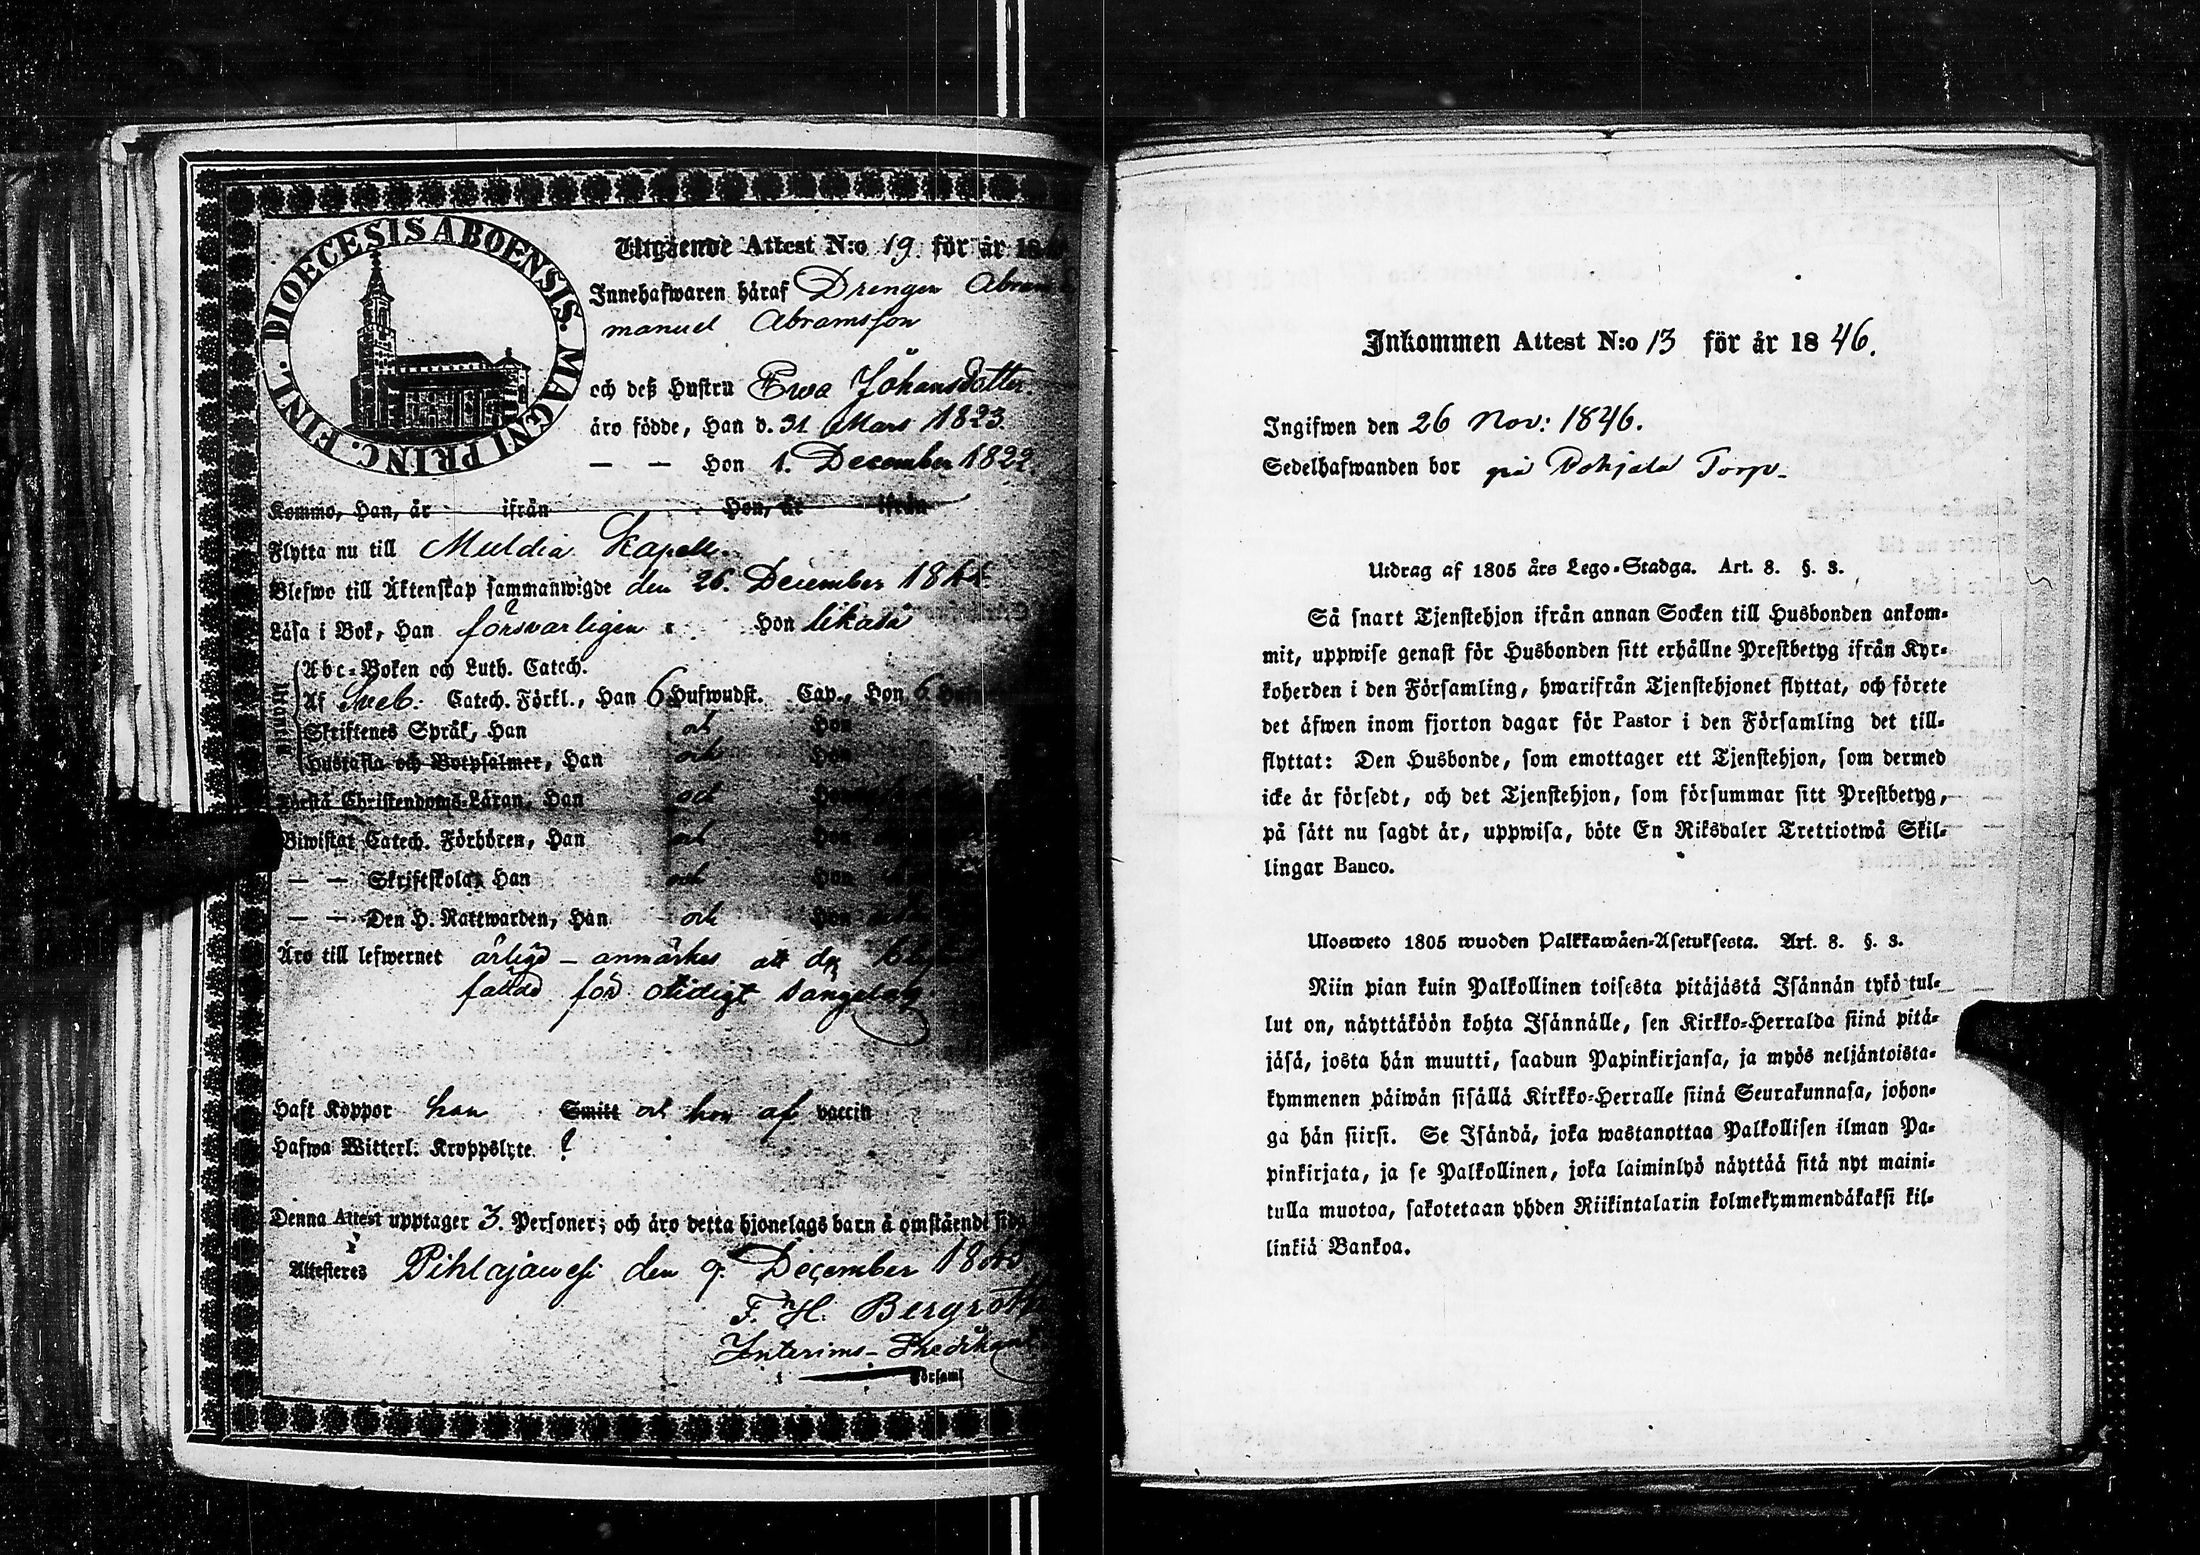 DIOECESIS ABOENSIS. MAGNI PRINC. FINL.
Utgående Attest N:o 19 för år 18
Innehafwaren håraf Drengen Abram
manuel Abramsson
och deß Hustru Ewa Johansdotter.
äro födde, Han d. 31 Mars 1823.
— — Hon 1. December 1822.
Kommo, Han, år ifrån Hon, år ifrån
Flytta nu till Muldia Kapell.
Blefwo till Äktenskap sammanwigde den 26. December 1844
Läsa i Bok, Han försvarligen Hon likaså
Abc-Boken och Luth. Catech.
Af Sveb. Catech. Förkl., Han 6 Hufwudst. Cap., Hon 6
Kunna
Skriftenes Språk, Han och Hon
Hustafla och Botpsalmer, Han och Hon
Förstå Christendoms-Läran, Han och
Biwistat Catech. Förhören, Han och Hon
— — Skriftskola, Han och Hon
— — Den H. Nattwarden, Han och Hon
Äro till lefwernet ärlige – anmärkes att de
fällde för otidigt sängelag
Haft Koppor han Smitt och hon af vaccin
Hafwa Witterl. Kroppslyte ?
Denna Attest upptager 3. Personer; och äro detta hjonelags barn å omstående sida
Attesteres Pihlajawesi den 9. December 184
F. H. Bergroth
Interims-Predikant
Församl
Inkommen Attest N:o 13 för år 1846.
Ingifwen den 26 Nov: 1846.
Sedelhafwanden bor på Pohjala Torp-
Utdrag af 1805 års Lego-Stadga. Art. 8. §. 3.
Så snart Tjenstehjon ifrån annan Socken till Husbonden ankom-
mit, uppwise genast för Husbonden sitt erhållne Prestbetyg ifrån Kyr-
koherden i den Församling, hwarifrån Tjenstehjonet flyttat, och förete
det äfwen inom fjorton dagar för Pastor i den Församling det till-
flyttat: Den Husbonde, som emottager ett Tjenstehjon, som dermed
icke är försedt, och det Tjenstehjon, som försummar sitt Prestbetyg,
på sätt nu sagdt är, uppwisa, böte En Riksdaler Trettiotwå Skil-
lingar Banco.
Ulosweto 1805 wuoden Palkkawäen-Asetuksesta. Art. 8. §. 3.
Niin pian kuin Palkollinen toisesta pitäjästä Isännän tykö tul-
lut on, näyttäköön kohta Isännälle, sen Kirkko-Herralda siinä pitä-
jäsä, josta hän muutti, saadun Papinkirjansa, ja myös neljäntoista-
kymmenen päiwän sisällä Kirkko-Herralle siinä Seurakunnasa, johon-
ga hän siirsi. Se Isändä, joka wastanottaa Palkollisen ilman Pa-
pinkirjata, ja se Palkollinen, joka laiminlyö näyttää sitä nyt maini-
tulla muotoa, sakotetaan yhden Riikintalarin kolmekymmendäkaksi kil-
linkiä Bankoa.